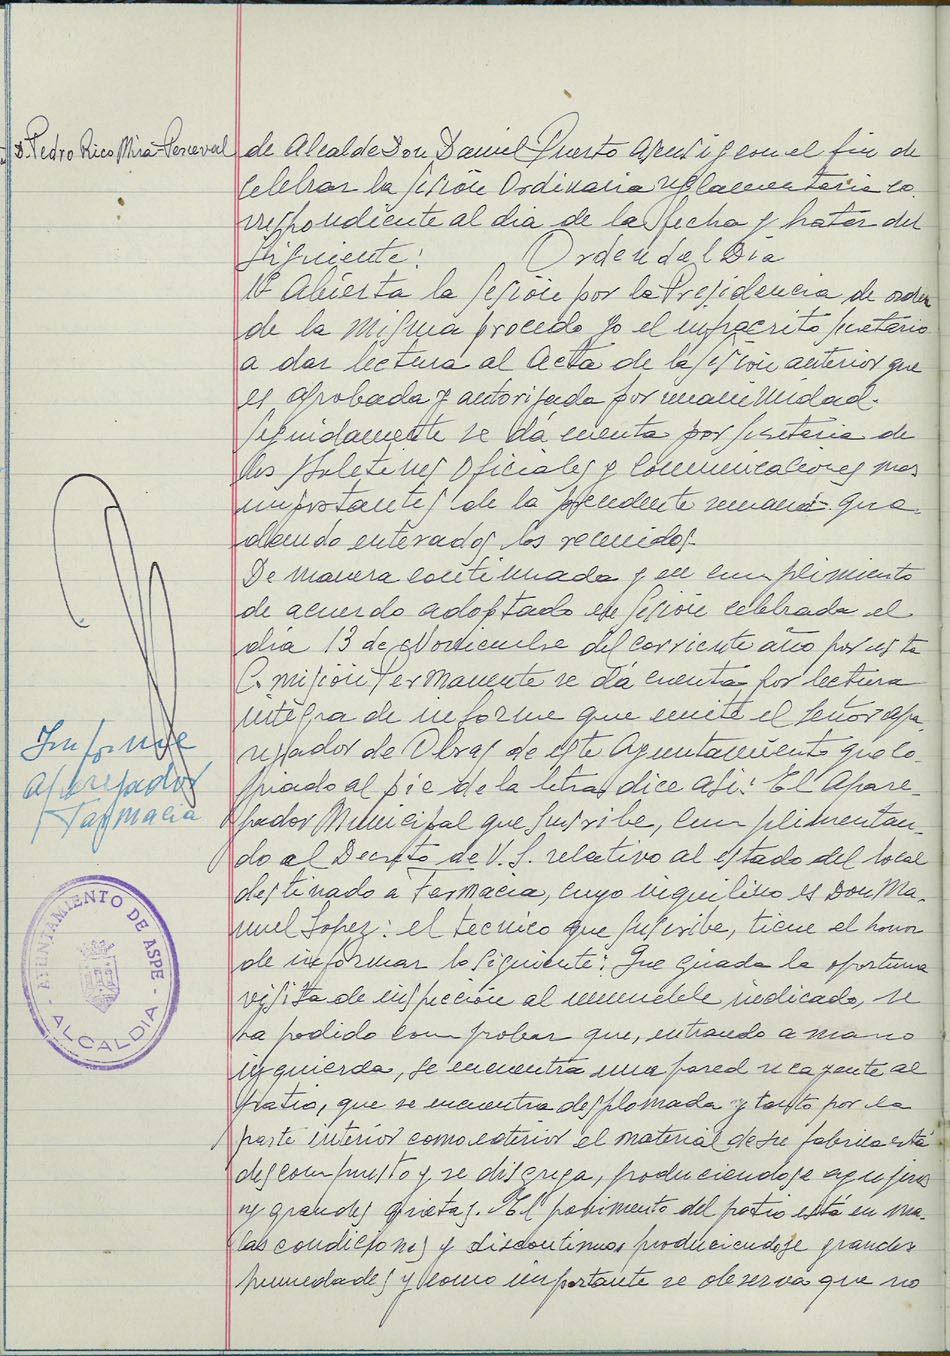 D. Pedro Rico Mirá-Perceval
de Alcalde Don Daniel Puerto Asensi, y con el fin de
celebrar la sesión Ordinaria reglamentaria co-
rrespondiente al dia de la fecha y tratar del
siguiente: Orden del Día
1º Abierta la sesión por la Presidencia, de orden
de la misma procedo yo el infracrito secretario
a dar lectura al Acta de la sesión anterior que
es aprobada y autorizada por unanimidad.
Seguidamente se dá cuenta por secretaria de
los Boletines Oficiales y comunicaciones mas
importantes de la precedente semana que-
dando enterados los reunidos.
De manera continuada y en cumplimiento
de acuerdo adoptado en sesión celebrada el
día 13 de Noviembre del corriente año por esta
Comisión Permanente se dá cuenta por lectura
integra de informe que emite el señor Apa-
rejador de Obras de este Ayuntamiento que co-
piado al pie de la letra dice asi: El Apare-
jador Municipal que suscribe, cumplimentan-
do al Decreto de V.S. relativo al estado del local
destinado a Farmacia, cuyo inquilino es Don Ma-
nuel Lopez: el tecnico que suscribe, tiene el honor
de informar lo siguiente: Que girada la oportuna
visita de inspección al inmueble indicado, se
ha podido comprobar que, entrando a mano
izquierda, se encuentra una pared recayente al
patio, que se encuentra desplomada y tanto por la
parte interior como exterior el material de su fabrica está
descompuesto y se disgrega, produciendose agujeros
y grandes grietas. El pavimento del patio está en ma-
las condiciones y discontinuo, produciendose grandes
humedades y como importante se observa que no
Informe
Aparejador
Farmacia
- AYUNTAMIENTO DE ASPE -
ALCALDIA